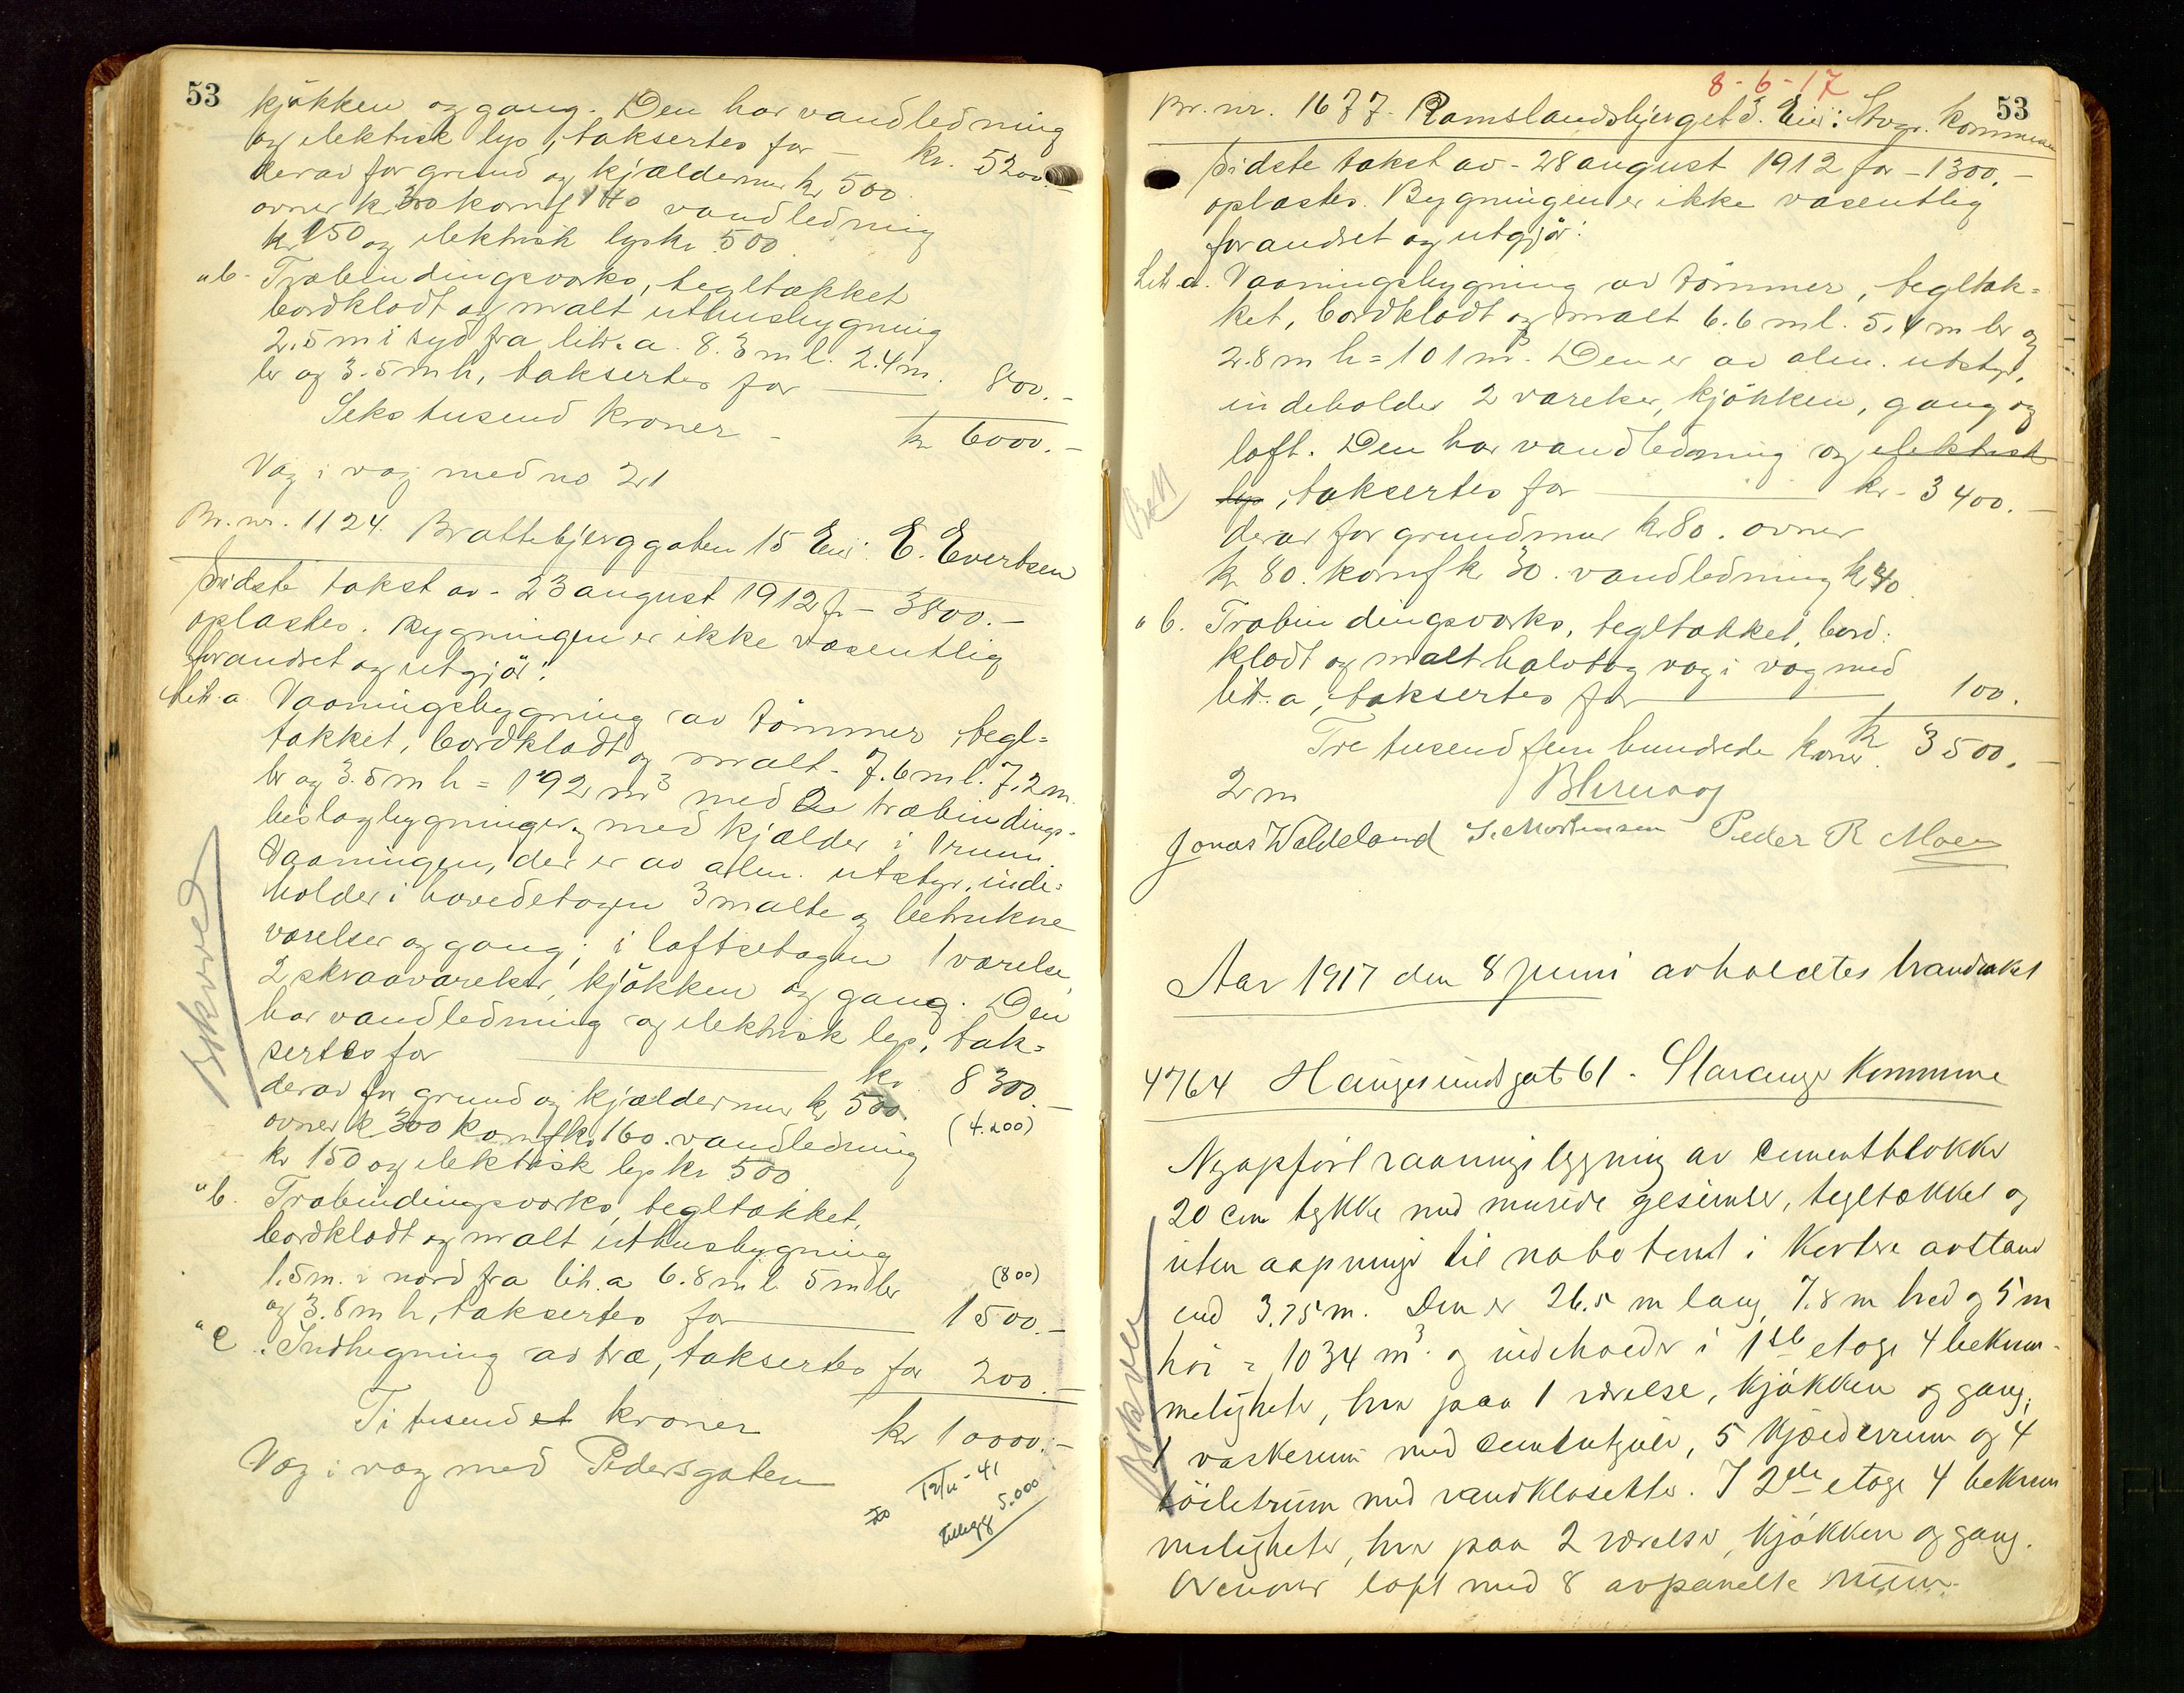 53
kjøkken og gang. Den har vandledning
og elektrisk lys, taksertes for — kr. 5200.-
derav for grund og kjældermur kr 500
ovner kr 300 komf 140 vandledning
kr 150 og elektrisk lys kr 500
"b. Træbindingsværks, tegltækket
bordklædt og malt uthusbygning
2.5 m i syd fra litr. a. 8.3 m l. 2.4 m.
br og 3.5 m h, taksertes for — 800.-
Seks tusend kroner - kr 6000.-
Væg i væg med no 21
Br. nr. 1124. Brattebjerggaten 15 Eier: E. Evertsen
Sidste takst av - 23 august 1912 fr - 3800.-
oplæstes. Bygningen er ikke væsentlig
forandret og utgjør:
Litr. a. Vaaningsbygning av tømmer, tegl=
tækket, bordklædt og malt - 7.6 m l. 7.2 m.
br og 3.5 m h = 192 m3 med 2 træbindings-
beslagbygninger, med kjælder i 1 rum.
Vaaningen, der er av alm. utstyr, inde=
holder i hovedetagen 3 malte og betrukne
værelser og gang; i loftsetagen 1 værelse,
2 skraaværelser, kjøkken og gang. Den
har vandledning og elektrisk lys, tak=
sertes for — kr 8300.-
derav for grund og kjældermur kr 500. (4.200)
ovner kr 300 komf kr 160. vandledning
kr 150 og elektrisk lys kr 500
"b. Træbindingsværks, tegltækket,
bordklædt og malt uthusbygning
1.5 m. i nord fra litr. a 6.8 m l. 5 m br (800)
og 3.8 m h, taksertes for — 1500.-
"c. Indhegning av træ, taksertes for 200.-
Ti tusend et kroner kr 10000.-
Væg i væg med Pedersgaten
41
tillegg 5.000
Bykved
8-6-17
53
Br. nr. 1677. Ramslandsbjerget 3. Eier: Stvgr. kommune
Sidste takst av - 28 august 1912 for - 1300.-
oplæstes. Bygningen er ikke væsentlig
forandret og utgjør:
Litr. a. Vaaningsbygning av tømmer, tegltæk=
ket, bordklædt og malt 6.6 m l. 5.4 m br og
2.8 m h = 101 m3. Den er av alm. utstyr,
indeholder 2 værelser, kjøkken, gang og
loft. Den har vandledning og elektrisk
lys, taksertes for — kr - 3400.-
derav for grundmur kr 80. ovner
kr 80. komf kr 30. vandledning kr 40.
" b. Træbindingsværks, tegltækket, bord=
klædt og malt halvtag væg i væg med
litr. a, taksertes for — 100.
Tre tusend fem hundrede kroner. kr 3500.-
2 m
Jonas Waldeland S. Mortensen Peder R Moen
Aar 1917 den 8 juni avholdtes brandtakst
4764 Haugesundsgat 61 - Stavanger Kommune
Nyopført vaaningsbygning av cementblokke
20 cm tykke med murede gesimser, tegltækket og
uten aapninger til nabotomt i kortere avstand
end 3.75 m. Den er 26.5 m lang, 7.8 m bred og 5 m
høi = 1034 m3. og indeholder i 1ste etage 4 bekvem-
meligheter, hver paa 1 værelse, kjøkken og gang;
1 vaskerum med cementgulv, 5 kjælderrum og 4
toiletrum med vandklosetter. I 2den etage 4 bekvem
meligheter, hver paa 2 værelser, kjøkken og gang.
Ovenover loft med 8 avpanelte rum.